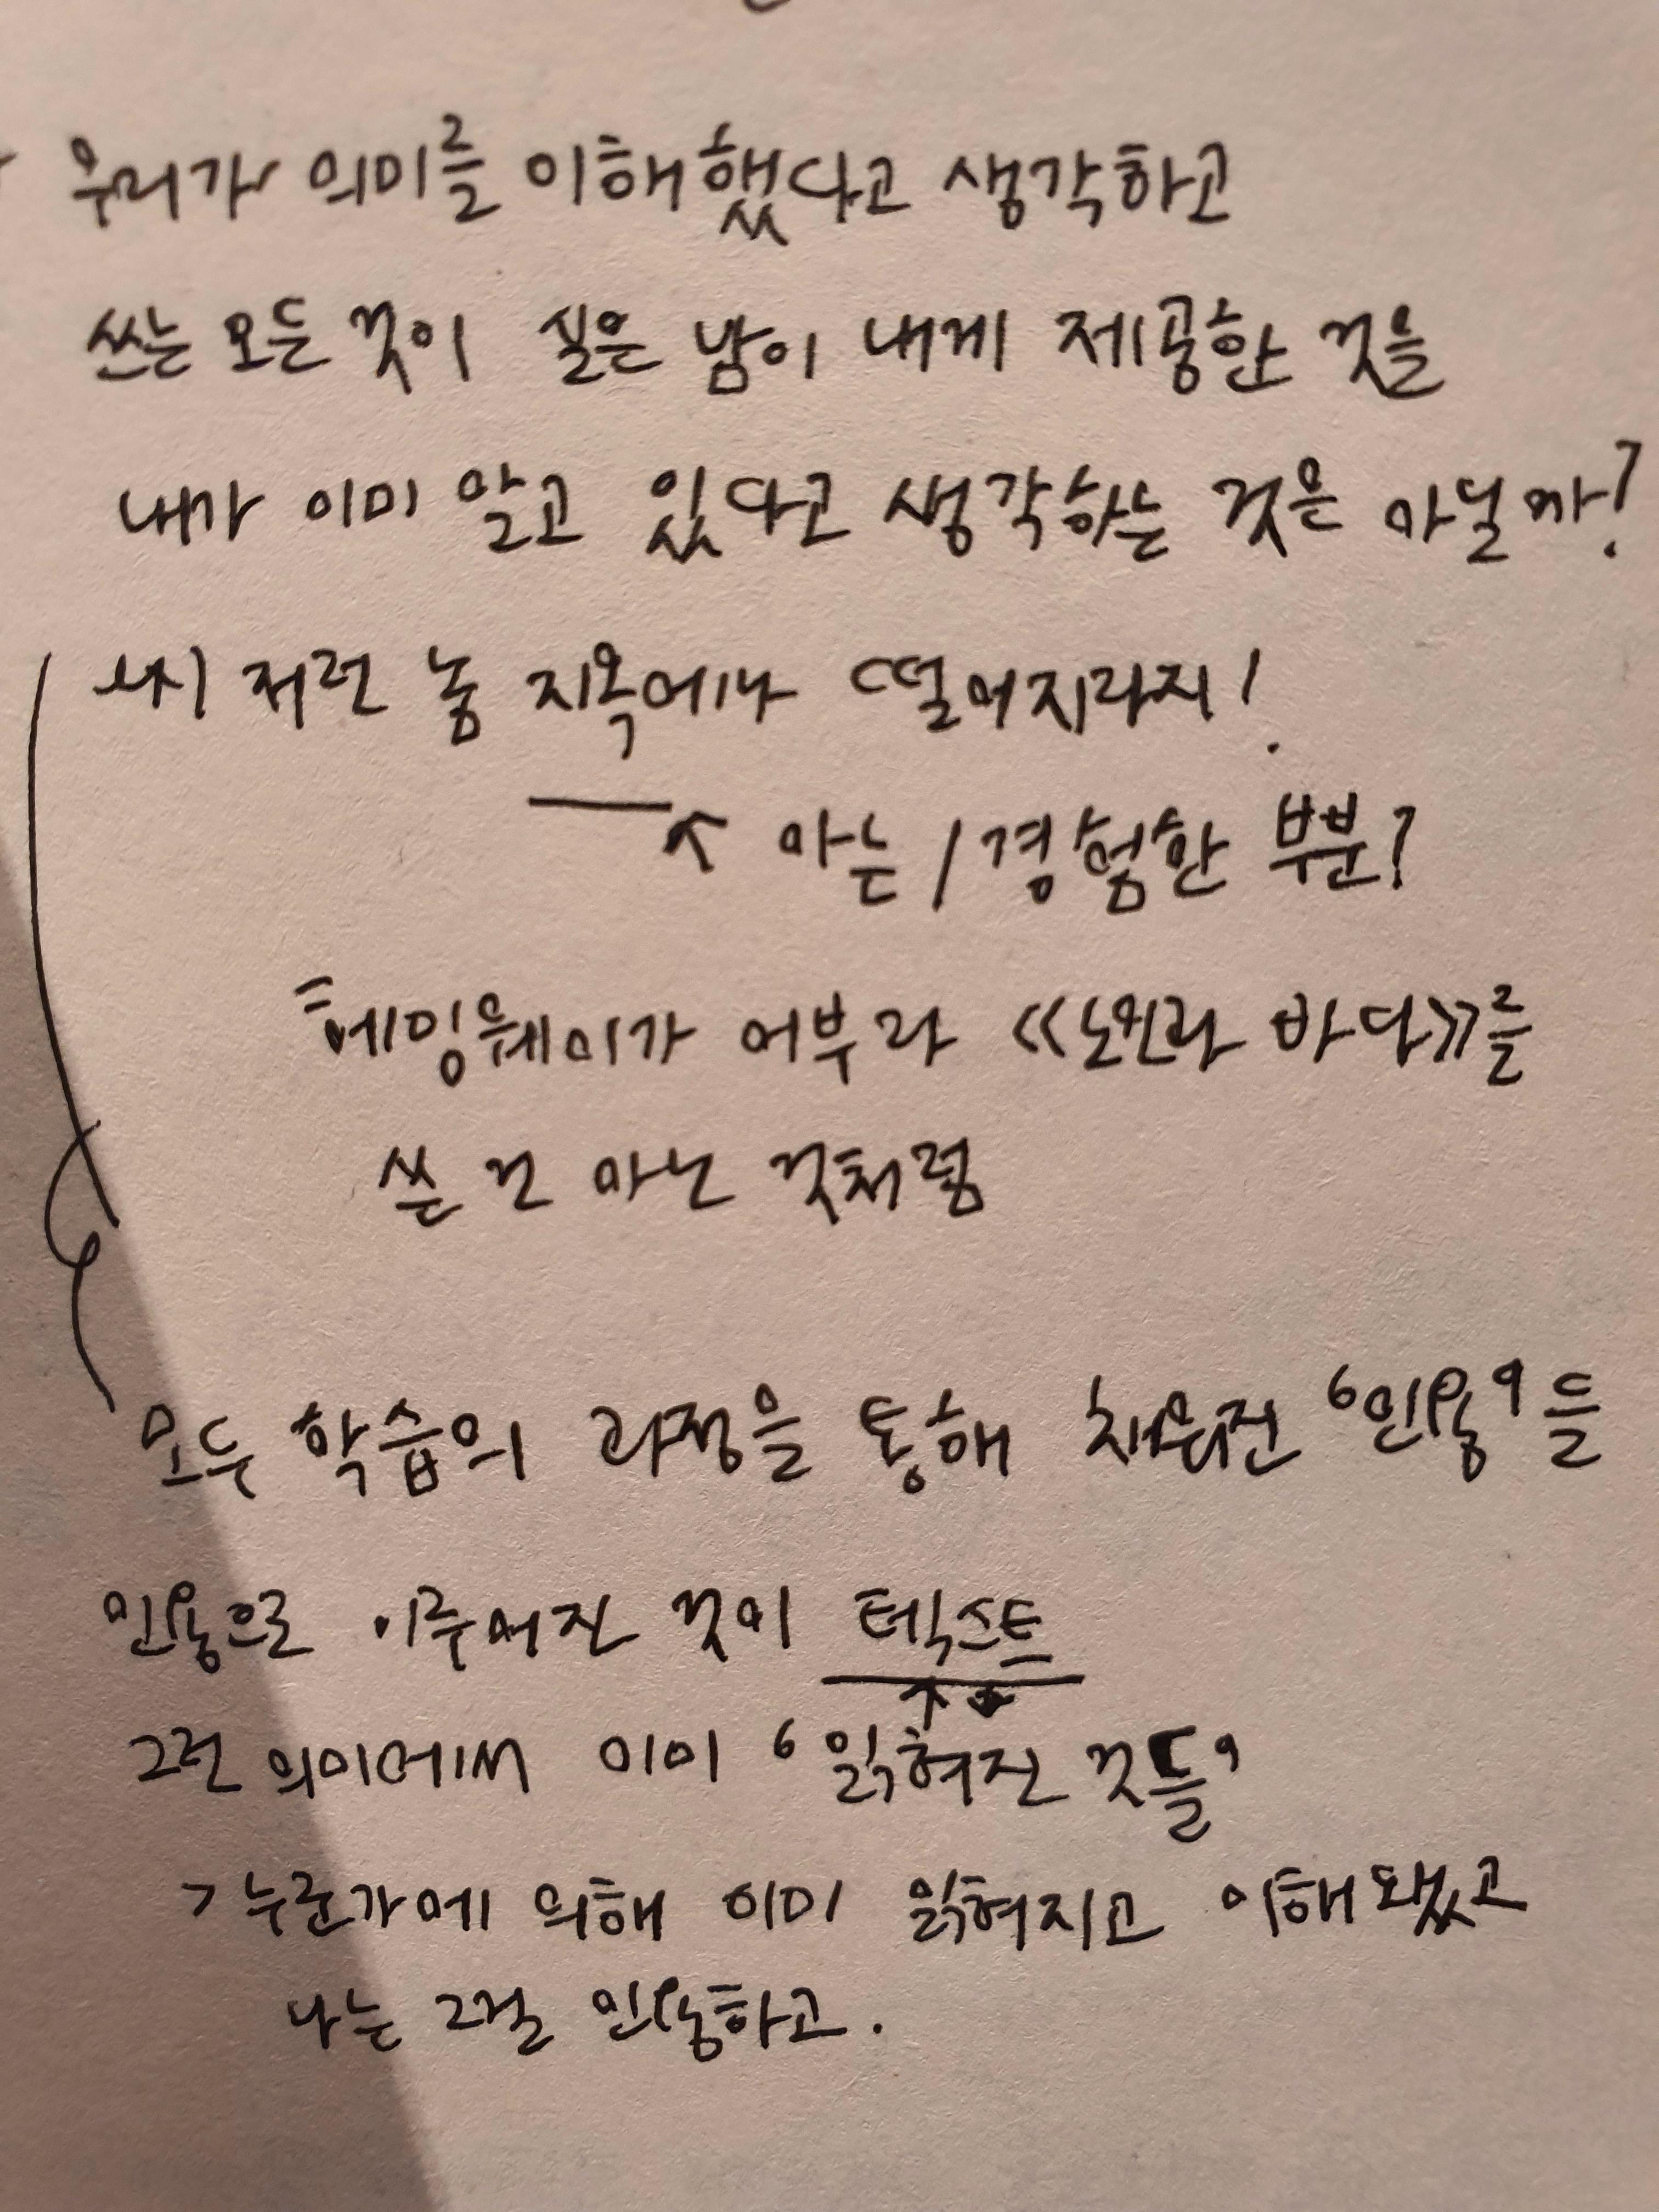 우리가 의미를 이해했다고 생각하고
쓰는 모든 것이 실은 밤이 내게 제공한 것을
내가 이미 알고 있다고 생각하는 것은 아닐까?
저런 놈 지옥에나 떨어지라지!
↑ 아는 / 경험한 부분?
헤밍웨이가 어부라 《노인과 바다》를
쓴 건 아닌 것처럼
모두 학습의 과정을 통해 채워진 '인용'들
인용으로 이루어진 것이 텍스트
그런 의미에서 이미 '읽혀진 것들'
> 누군가에 의해 이미 읽혀지고 이해됐고
나는 그걸 인용하고.